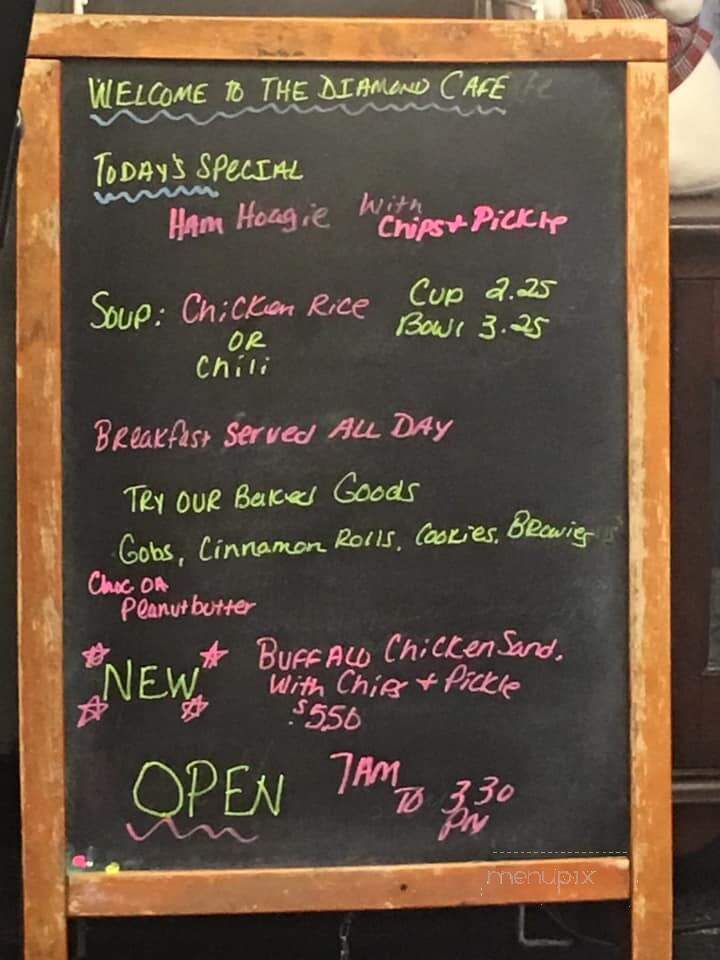 WELCOME TO THE DIAMOND CAFE
TODAY'S SPECIAL
HAM Hoagie With Chips + Pickle
Soup: Chicken Rice Cup 2.25
OR Bowl 3.25
Chili
Breakfast Served ALL DAY
TRY OUR Baked Goods
Gobs, Cinnamon Rolls, Cookies, Brownies
Choc OR
Peanutbutter
NEW BUFFALO Chicken Sand.
With Chips + Pickle
$5.50
OPEN 7AM TO 3:30 PM
menupix